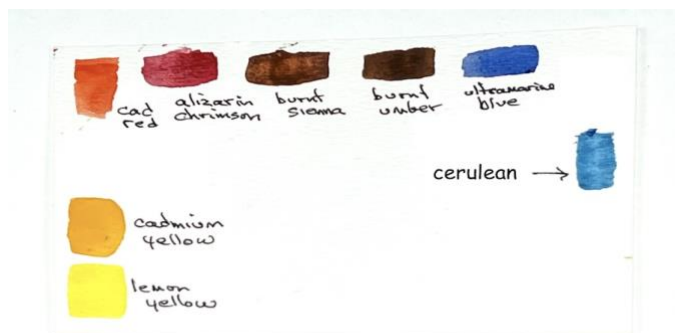 cad
red
alizarin
chrimson
burnt
sienna
burnt
umber
ultramarine
blue
cerulean
cadmium
yellow
lemon
yellow